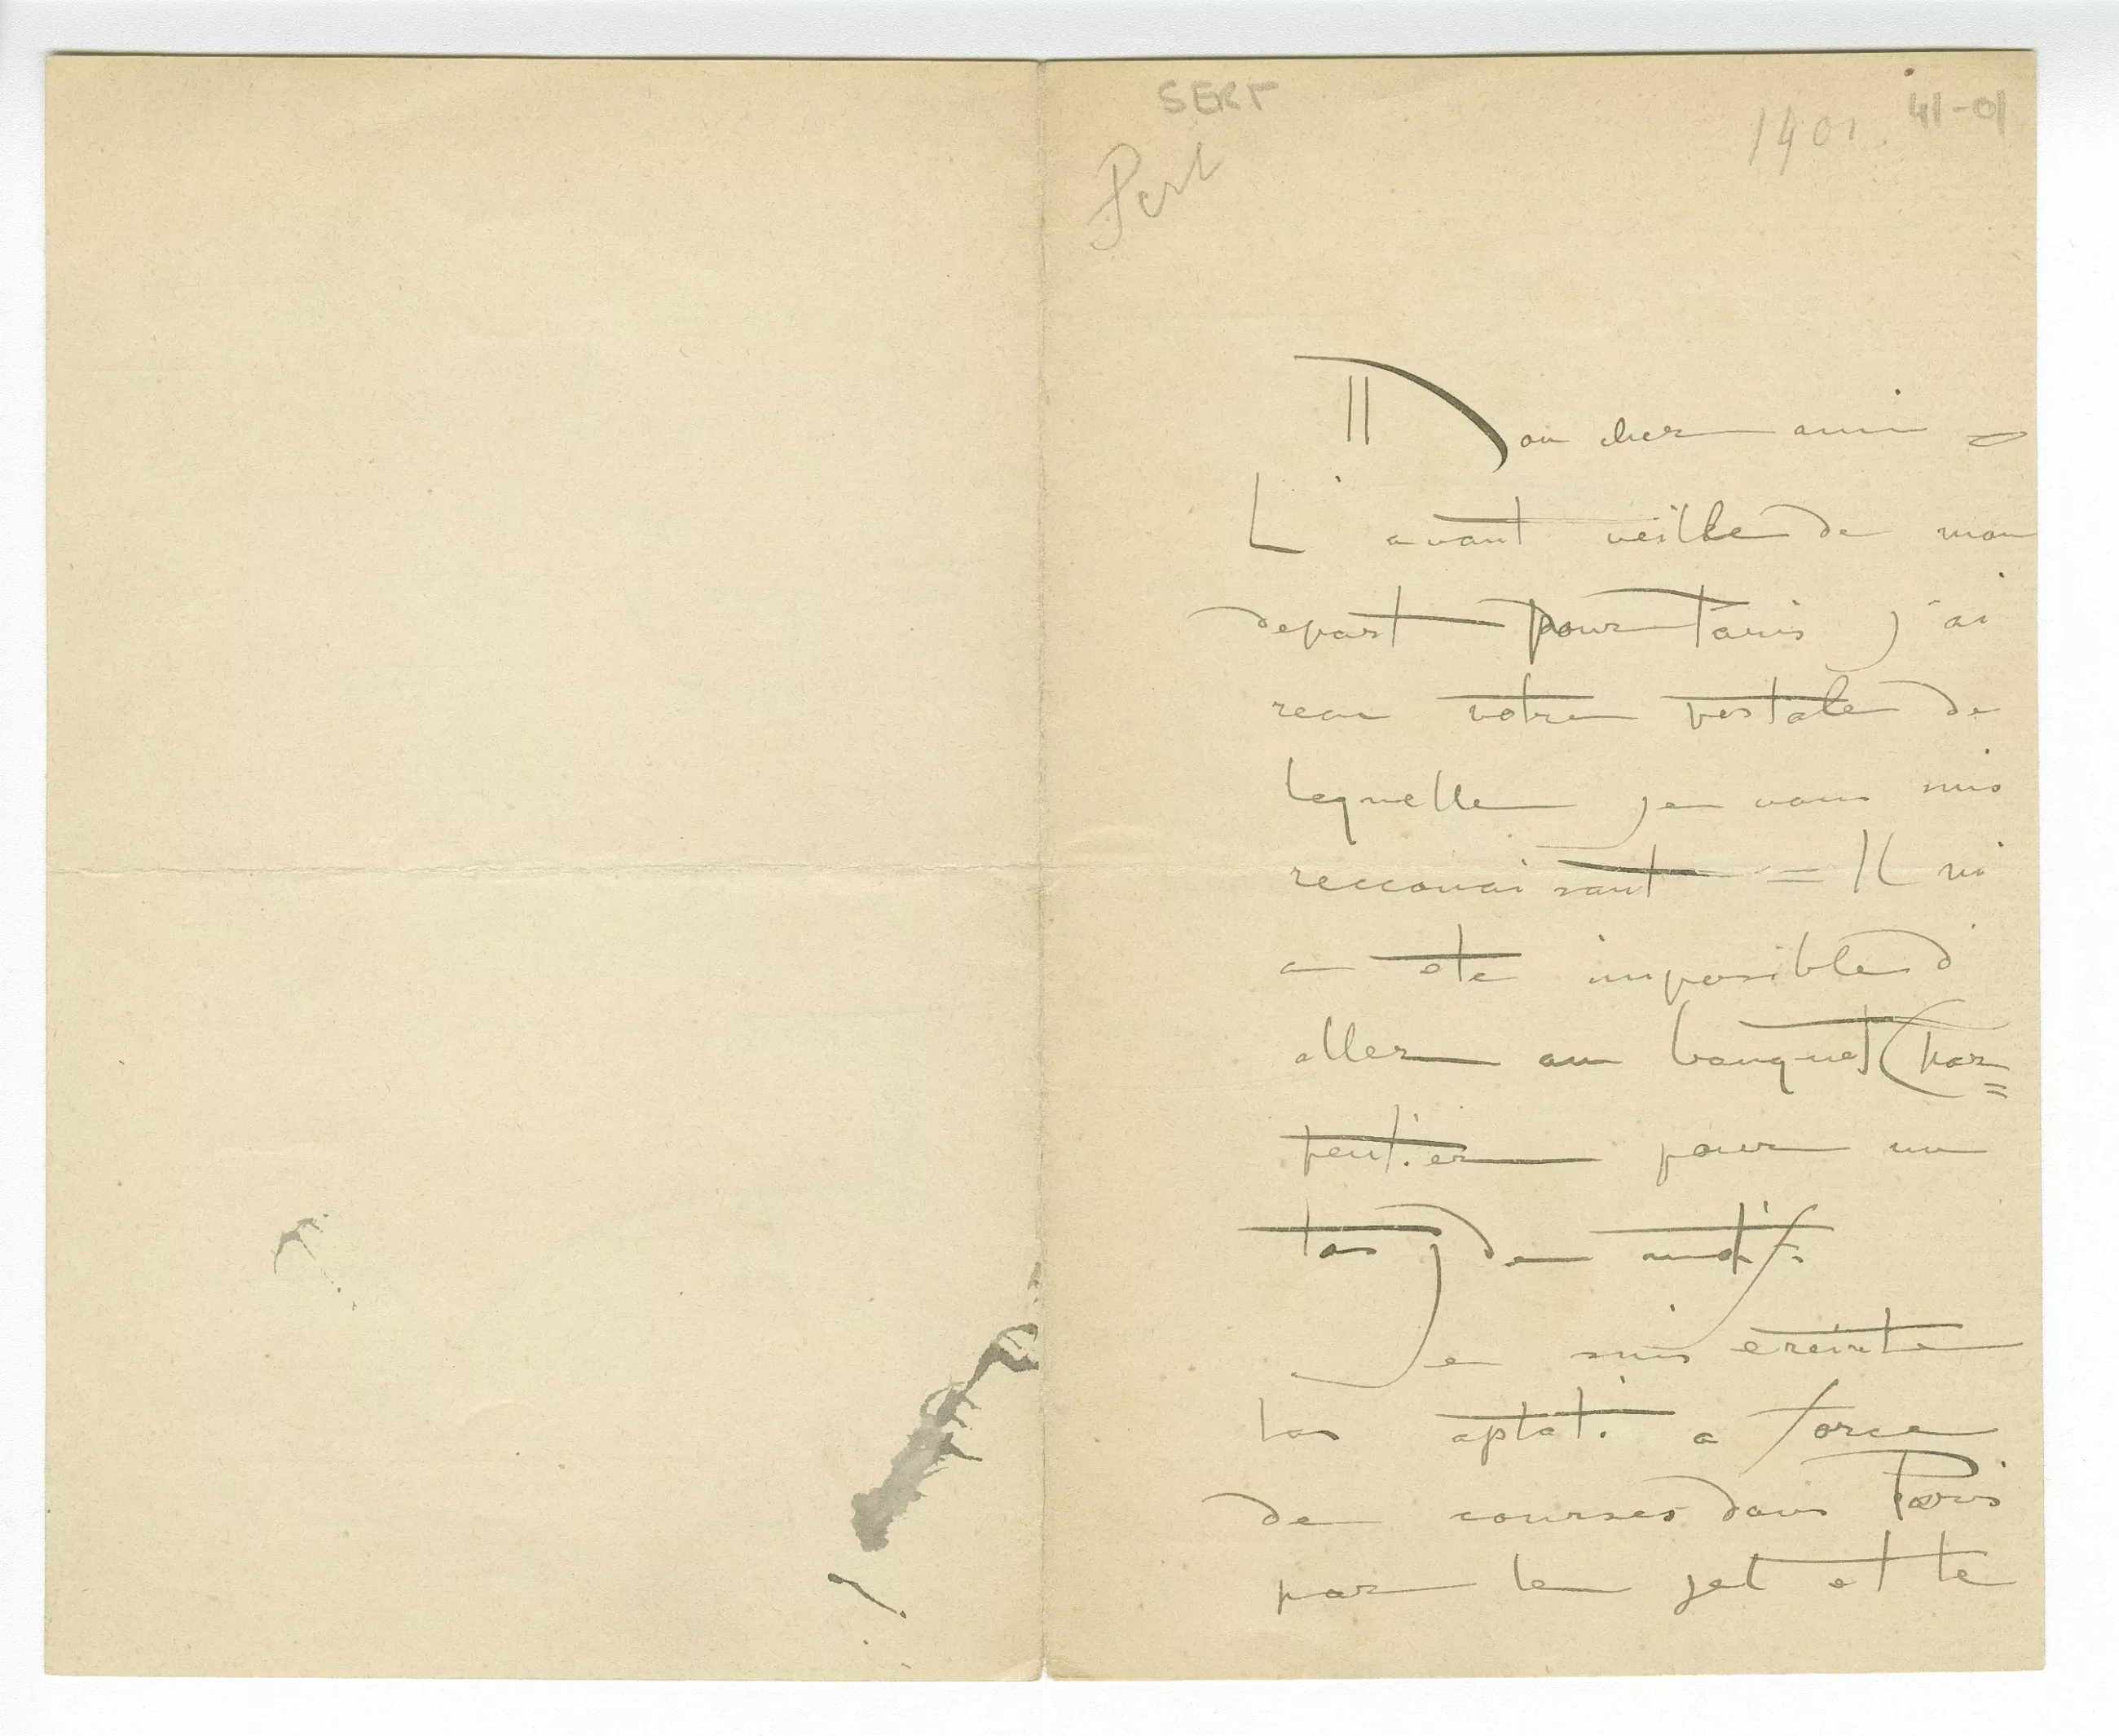 SERT
41-01
1901.
Sert
Mon cher ami
L'avant veille de mon
depart pour Paris j'ai
recu votre postale de
laquelle je vous suis
reconnaisant = Il m'
a ete imposible d'
aller au banquet Char=
pentier pour un
tas de motifs.
Je suis ereinte
a force
de courses dans Paris
par le gel et le